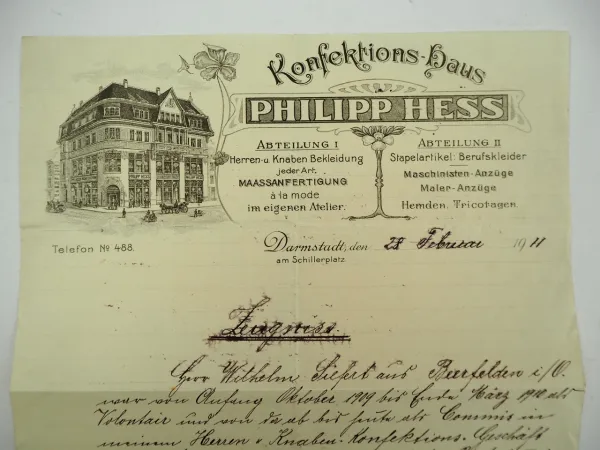 Konfektions-Haus
PHILIPP HESS
ABTEILUNG I
Herren- u. Knaben Bekleidung
jeder Art.
MAASSANFERTIGUNG
à la mode
im eigenen Atelier.
ABTEILUNG II
Stapelartikel: Berufskleider
Maschinisten-Anzüge
Maler-Anzüge
Hemden, Tricotagen.
Telefon No 488.
Darmstadt, den 28 Februar 1911
am Schillerplatz.
Zeugniss.
Herr Wilhelm Siefert aus Beerfelden i/O.
war von Anfang Oktober 1909 bis Ende März 1910 als
Volontair und von da ab bis heute als Commis in
meinem Herren u Knaben-Konfektions-Geschäft